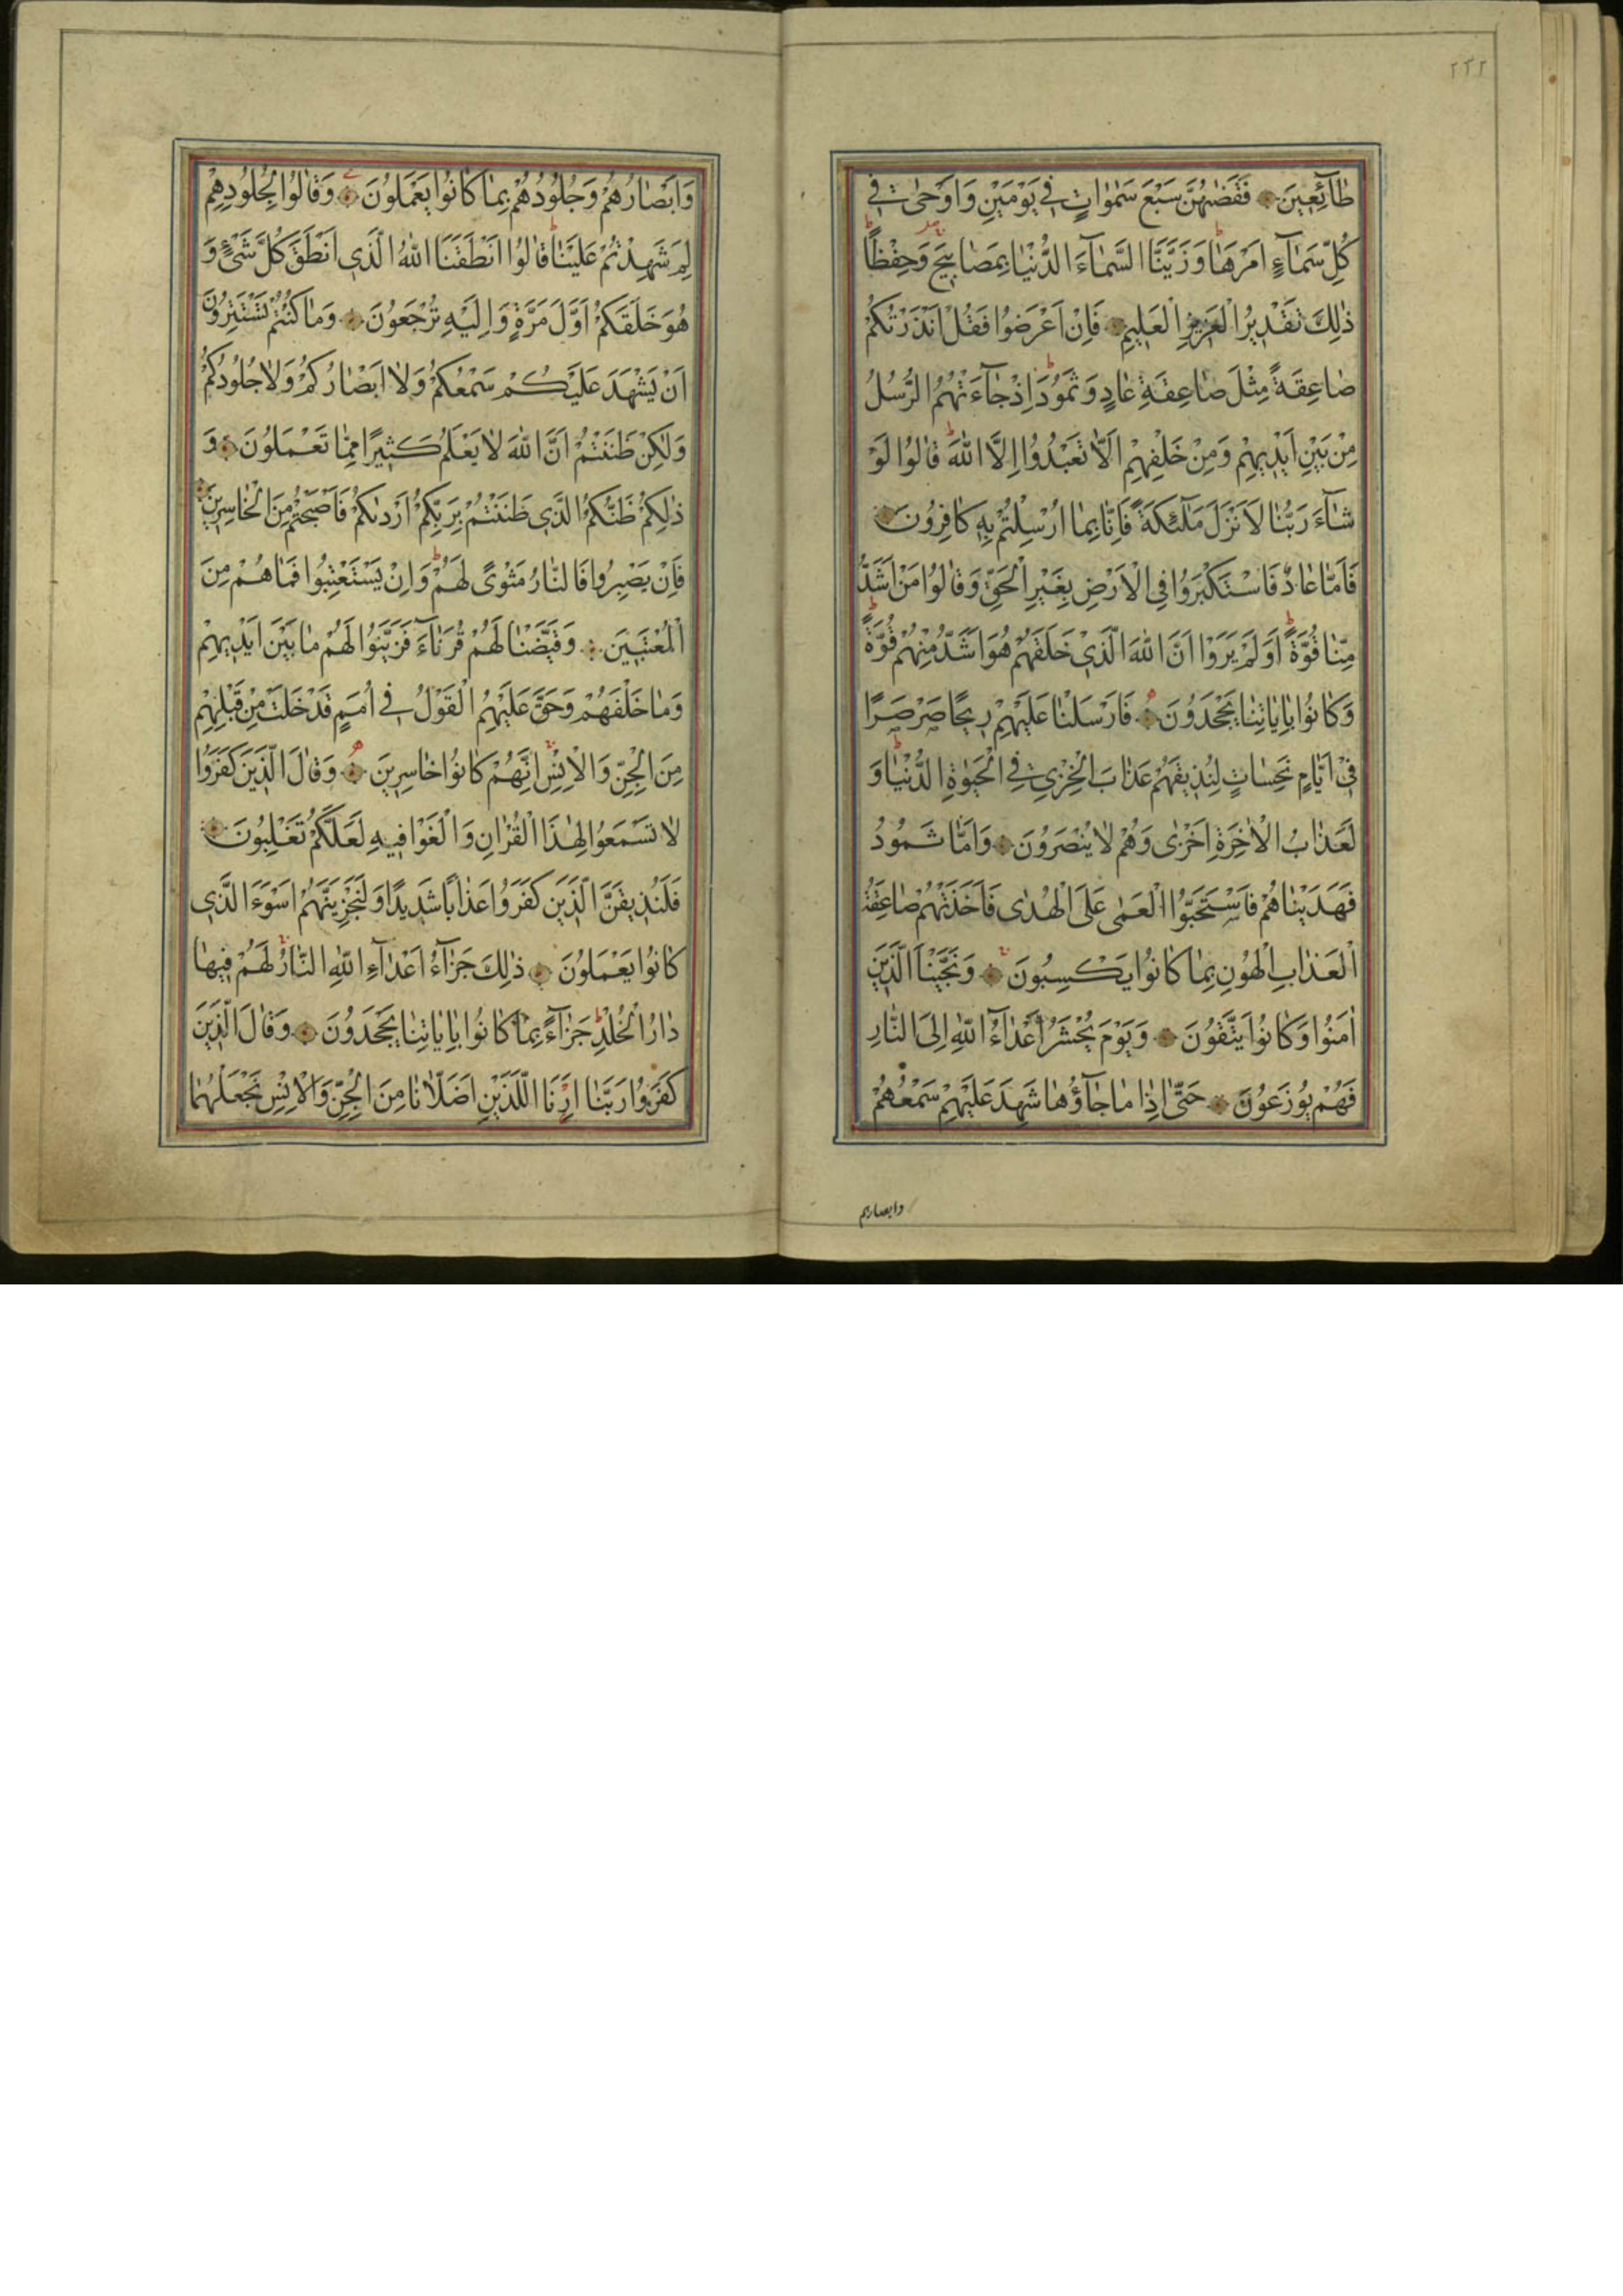 ٢٢٢
طَآئِعِينَ ۞ فَقَضٰهُنَّ سَبْعَ سَمٰوَاتٍ فِي يَوْمَيْنِ وَاَوْحٰى فِي
كُلِّ سَمَآءٍ اَمْرَهَا وَزَيَّنَّا السَّمَآءَ الدُّنْيَا بِمَصَابِيحَ وَحِفْظًا
ذٰلِكَ تَقْدِيرُ الْعَزِيزِ الْعَلِيمِ ۞ فَاِنْ اَعْرَضُوا فَقُلْ اَنْذَرْتُكُمْ
صَاعِقَةً مِثْلَ صَاعِقَةِ عَادٍ وَثَمُودَ اِذْ جَآءَتْهُمُ الرُّسُلُ
مِنْ بَيْنِ اَيْدِيهِمْ وَمِنْ خَلْفِهِمْ اَلَّا تَعْبُدُوا اِلَّا اللّٰهَ قَالُوا لَوْ
شَآءَ رَبُّنَا لَاَنْزَلَ مَلٰٓئِكَةً فَاِنَّا بِمَا اُرْسِلْتُمْ بِهِ كَافِرُونَ ۞
فَاَمَّا عَادٌ فَاسْتَكْبَرُوا فِي الْاَرْضِ بِغَيْرِ الْحَقِّ وَقَالُوا مَنْ اَشَدُّ
مِنَّا قُوَّةً اَوَلَمْ يَرَوْا اَنَّ اللّٰهَ الَّذِي خَلَقَهُمْ هُوَ اَشَدُّ مِنْهُمْ قُوَّةً
وَكَانُوا بِاٰيَاتِنَا يَجْحَدُونَ ۞ فَاَرْسَلْنَا عَلَيْهِمْ رِيحًا صَرْصَرًا
فِي اَيَّامٍ نَحِسَاتٍ لِنُذِيقَهُمْ عَذَابَ الْخِزْيِ فِي الْحَيٰوةِ الدُّنْيَا وَ
لَعَذَابُ الْاٰخِرَةِ اَخْزٰى وَهُمْ لَا يُنْصَرُونَ ۞ وَاَمَّا ثَمُودُ
فَهَدَيْنَاهُمْ فَاسْتَحَبُّوا الْعَمٰى عَلَى الْهُدٰى فَاَخَذَتْهُمْ صَاعِقَةُ
الْعَذَابِ الْهُونِ بِمَا كَانُوا يَكْسِبُونَ ۞ وَنَجَّيْنَا الَّذِينَ
اٰمَنُوا وَكَانُوا يَتَّقُونَ ۞ وَيَوْمَ يُحْشَرُ اَعْدَآءُ اللّٰهِ اِلَى النَّارِ
فَهُمْ يُوزَعُونَ ۞ حَتّٰى اِذَا مَا جَآؤُهَا شَهِدَ عَلَيْهِمْ سَمْعُهُمْ
وابصارهم
وَاَبْصَارُهُمْ وَجُلُودُهُمْ بِمَا كَانُوا يَعْمَلُونَ ۞ وَقَالُوا لِجُلُودِهِمْ
لِمَ شَهِدْتُمْ عَلَيْنَا قَالُوا اَنْطَقَنَا اللّٰهُ الَّذِي اَنْطَقَ كُلَّ شَيْءٍ وَ
هُوَ خَلَقَكُمْ اَوَّلَ مَرَّةٍ وَاِلَيْهِ تُرْجَعُونَ ۞ وَمَا كُنْتُمْ تَسْتَتِرُونَ
اَنْ يَشْهَدَ عَلَيْكُمْ سَمْعُكُمْ وَلَا اَبْصَارُكُمْ وَلَا جُلُودُكُمْ
وَلٰكِنْ ظَنَنْتُمْ اَنَّ اللّٰهَ لَا يَعْلَمُ كَثِيرًا مِمَّا تَعْمَلُونَ ۞ وَ
ذٰلِكُمْ ظَنُّكُمُ الَّذِي ظَنَنْتُمْ بِرَبِّكُمْ اَرْدٰىكُمْ فَاَصْبَحْتُمْ مِنَ الْخَاسِرِينَ ۞
فَاِنْ يَصْبِرُوا فَالنَّارُ مَثْوًى لَهُمْ وَاِنْ يَسْتَعْتِبُوا فَمَا هُمْ مِنَ
الْمُعْتَبِينَ ۞ وَقَيَّضْنَا لَهُمْ قُرَنَآءَ فَزَيَّنُوا لَهُمْ مَا بَيْنَ اَيْدِيهِمْ
وَمَا خَلْفَهُمْ وَحَقَّ عَلَيْهِمُ الْقَوْلُ فِي اُمَمٍ قَدْ خَلَتْ مِنْ قَبْلِهِمْ
مِنَ الْجِنِّ وَالْاِنْسِ اِنَّهُمْ كَانُوا خَاسِرِينَ ۞ وَقَالَ الَّذِينَ كَفَرُوا
لَا تَسْمَعُوا لِهٰذَا الْقُرْاٰنِ وَالْغَوْا فِيهِ لَعَلَّكُمْ تَغْلِبُونَ ۞
فَلَنُذِيقَنَّ الَّذِينَ كَفَرُوا عَذَابًا شَدِيدًا وَلَنَجْزِيَنَّهُمْ اَسْوَءَ الَّذِي
كَانُوا يَعْمَلُونَ ۞ ذٰلِكَ جَزَآءُ اَعْدَآءِ اللّٰهِ النَّارُ لَهُمْ فِيهَا
دَارُ الْخُلْدِ جَزَآءً بِمَا كَانُوا بِاٰيَاتِنَا يَجْحَدُونَ ۞ وَقَالَ الَّذِينَ
كَفَرُوا رَبَّنَا اَرِنَا اللَّذَيْنِ اَضَلَّانَا مِنَ الْجِنِّ وَالْاِنْسِ نَجْعَلْهُمَا